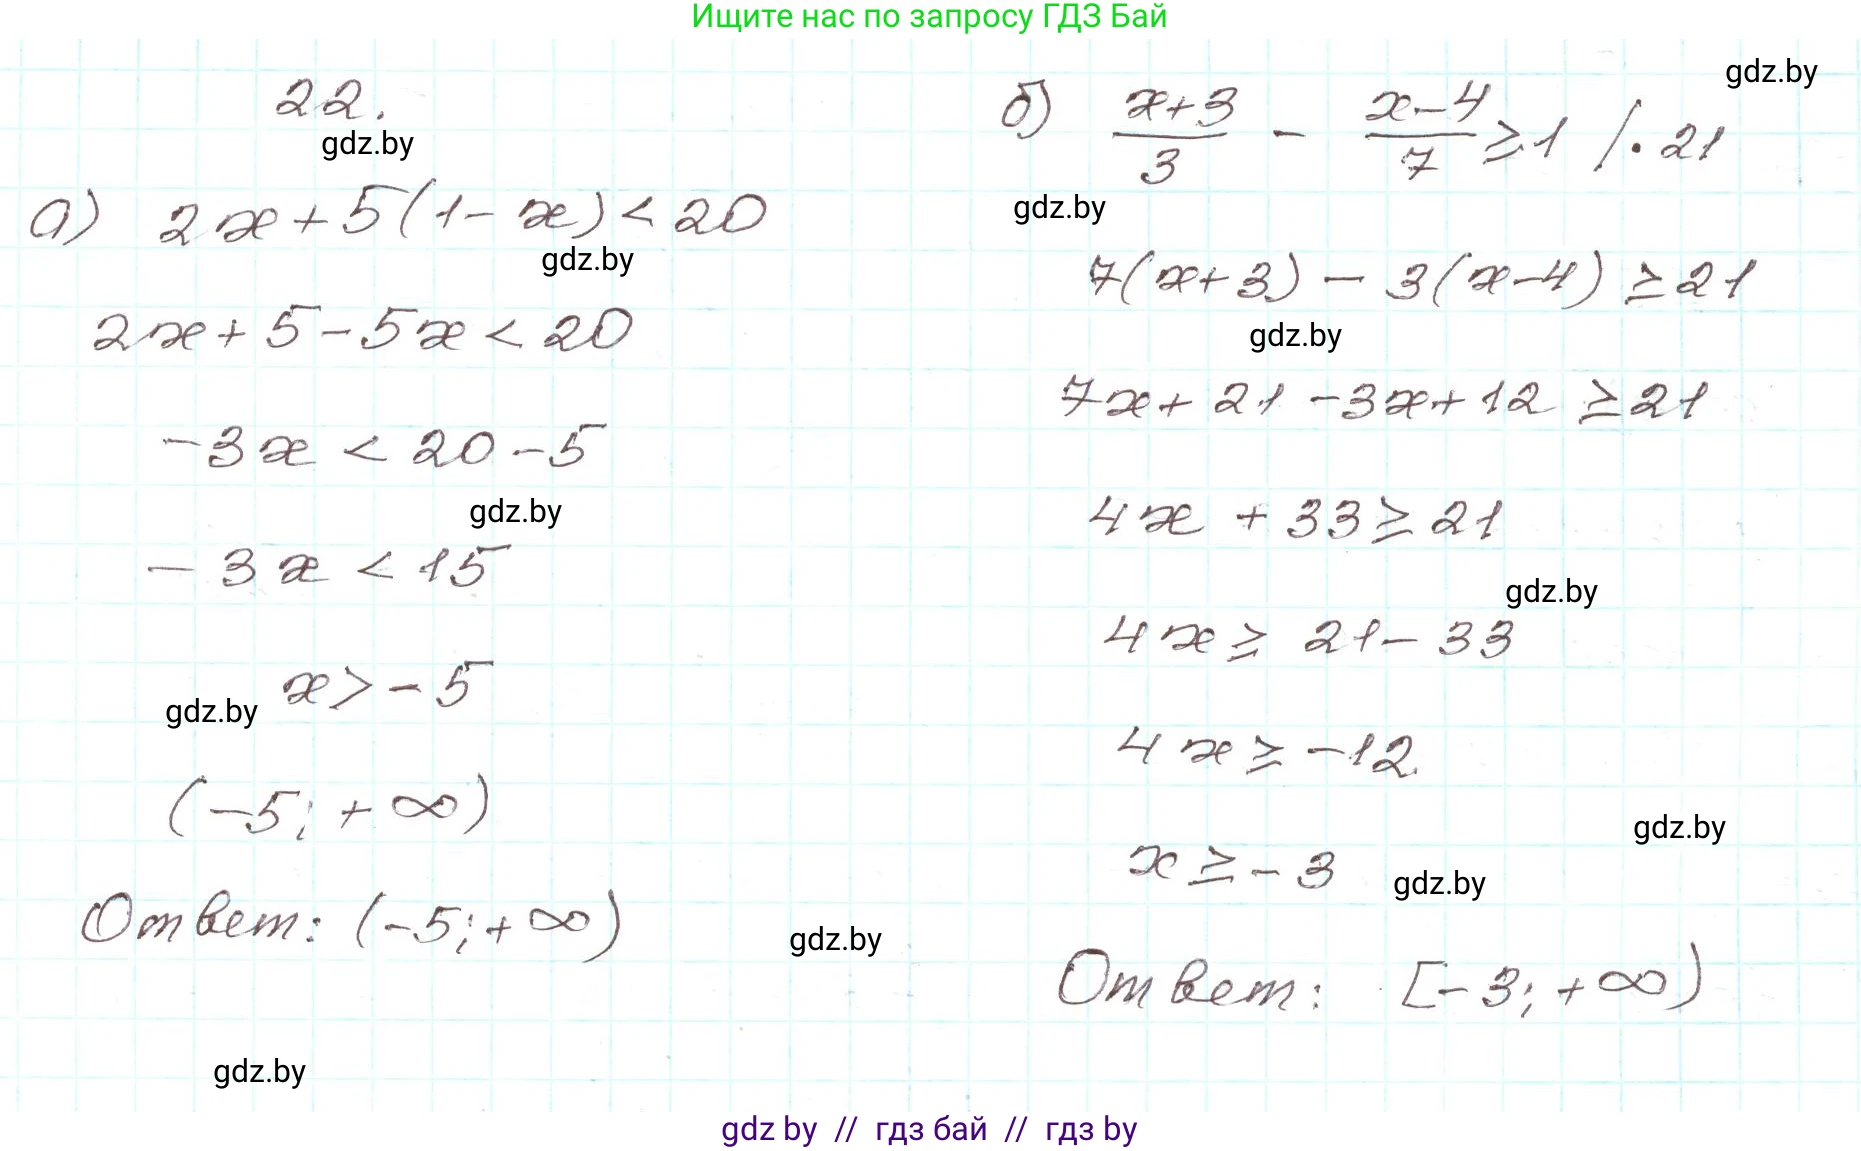 Ищите нас по запросу ГДЗ Бай
22.
gdz.by
а) 2x+5(1-x)<20
gdz.by
2x+5-5x<20
-3x<20-5
gdz.by
-3x<15
x>-5
gdz.by
(-5;+∞)
Ответ: (-5;+∞)
gdz.by
gdz.by
gdz.by
б) x+3/3 - x-4/7 ≥1 /·21
gdz.by
7(x+3)-3(x-4)≥21
gdz.by
7x+21-3x+12≥21
4x+33≥21
gdz.by
4x≥21-33
4x≥-12
gdz.by
x≥-3
gdz.by
Ответ: [-3;+∞)
gdz by // гдз бай // гдз by